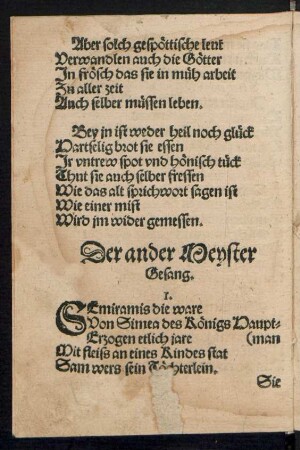 Aber solch gespöttische leut
Verwandlen auch die Götter
In frösch das sie in müh arbeit
Zu aller zeit
Auch selber müssen leben.
Bey jn ist weder heil noch glück
Hartselig brot sie essen
Ir untrew spot vnd hönisch tück
Thut sie auch selber fressen
Wie das alt sprichwort sagen ist
Wie einer mist
Wird jm wider gemessen.
Der ander Meyster
Gesang.
1.
SEmiramis die ware
Von Simea des Königs Haupt-
Erzogen etlich jare (man
Mit fleiß an eines Kindes stat
Sam wers sein Töchterlein.
Sie